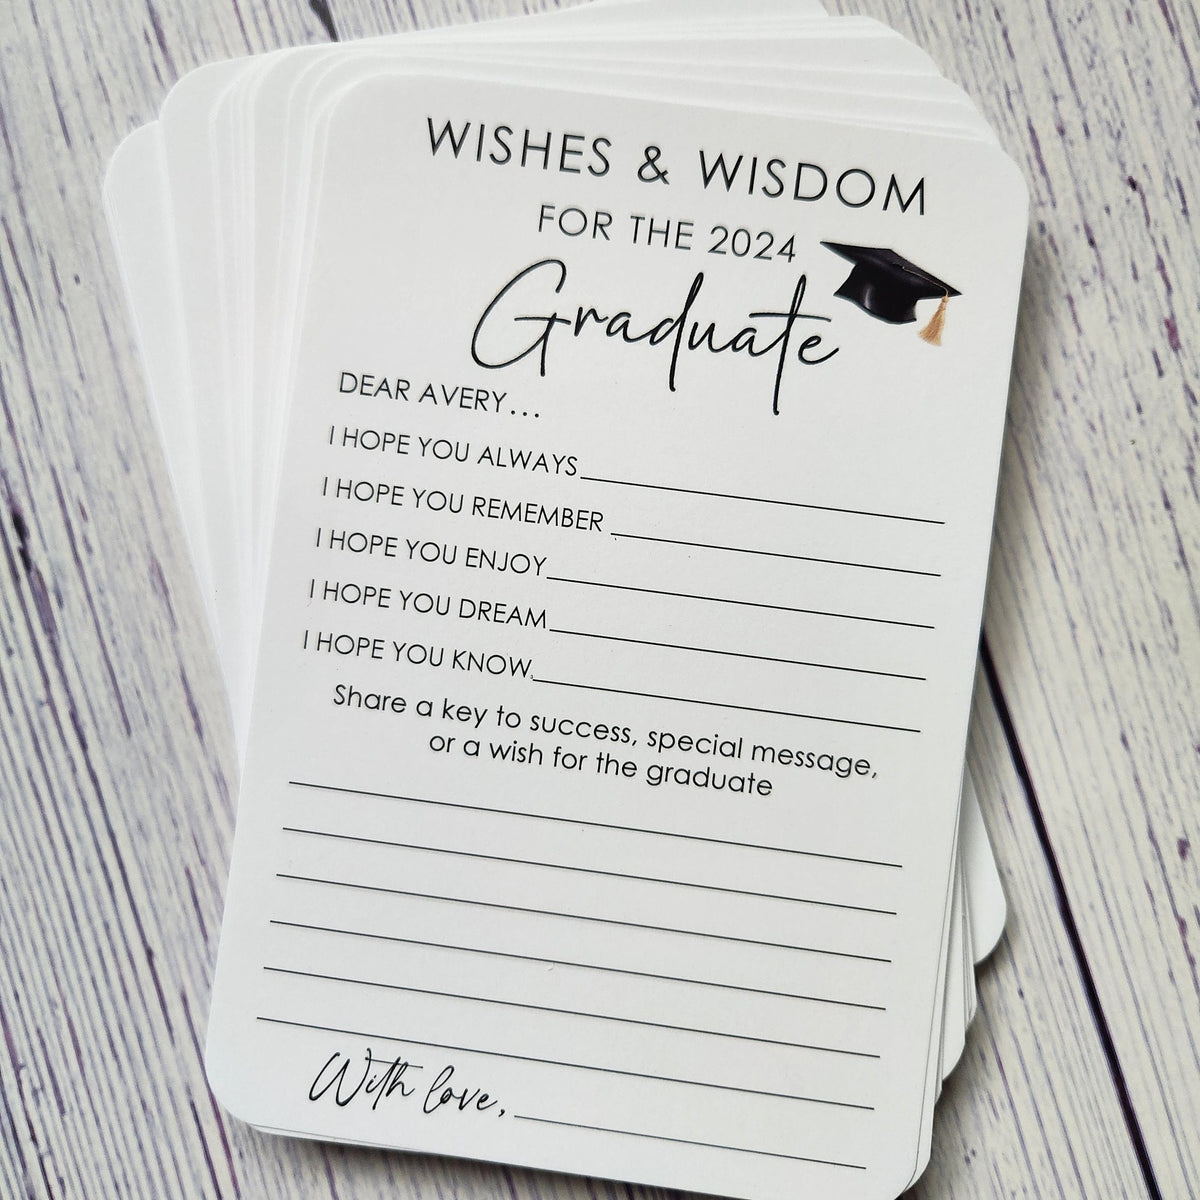 WISHES & WISDOM
FOR THE 2024
Graduate
DEAR AVERY...
I HOPE YOU ALWAYS
I HOPE YOU REMEMBER
I HOPE YOU ENJOY
I HOPE YOU DREAM
I HOPE YOU KNOW
Share a key to success, special message,
or a wish for the graduate
With love,